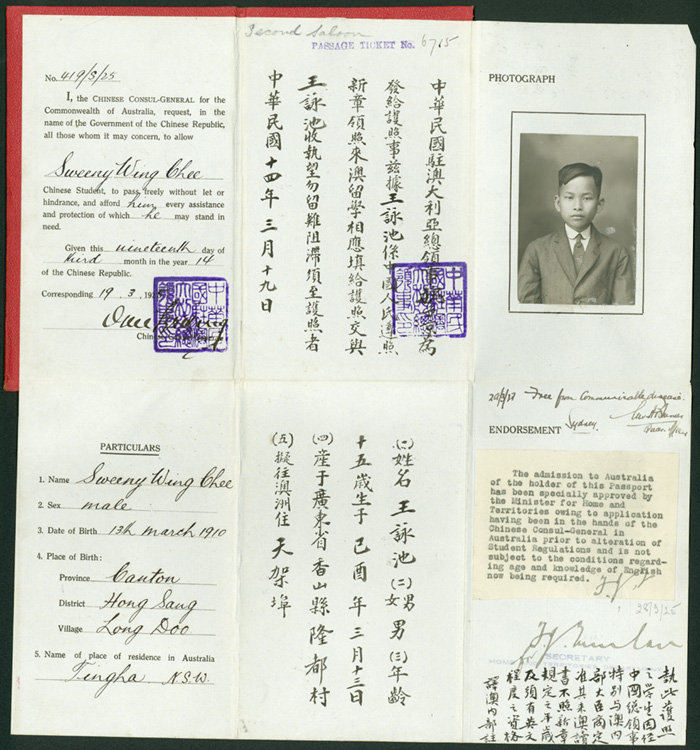 Second Saloon
PASSAGE TICKET No. 6715
No. 419/S/25
I, the CHINESE CONSUL-GENERAL for the
Commonwealth of Australia, request, in the
name of the Government of the Chinese Republic,
all those whom it may concern, to allow
Sweeny Wing Chee
Chinese Student, to pass freely without let or
hindrance, and afford him every assistance
and protection of which he may stand in
need.
Given this nineteenth day of
third month in the year 14
of the Chinese Republic.
Corresponding 19. 3. 192
中華民國駐澳大利亞總領事
為
發給護照事茲據王詠池係中國人民遵照
新章領照來澳留學相應填給護照交與
王詠池收執望勿留難阻滯須至護照者
中華民國十四年三月十九日
PHOTOGRAPH
Free from Communicable diseases.
Sydney
ENDORSEMENT
The admission to Australia
of the holder of this Passport
has been specially approved by
the Minister for Home and
Territories owing to application
having been in the hands of the
Chinese Consul-General in
Australia prior to alteration of
Student Regulations and is not
subject to the conditions regard-
ing age and knowledge of English
now being required.
28/3/25
SECRETARY
執此護照
之學生因經
中國總領事
特別與澳內
部大臣商定
准其來澳讀
書不照新章
規定之年歲
及須有英文
程度之資格
譯澳內部註
PARTICULARS
1. Name Sweeny Wing Chee
2. Sex male
3. Date of Birth 13th March 1910
4. Place of Birth:
Province Canton
District Hong Sang
Village Long Doo
5. Name of place of residence in Australia
Tingha N.S.W.
(一)姓名 王詠池 (二)男女 男 (三)年齡
十五歲生于己酉年三月十三日
(四)產于廣東省香山縣隆都村
(五)擬往澳洲住 天架埠